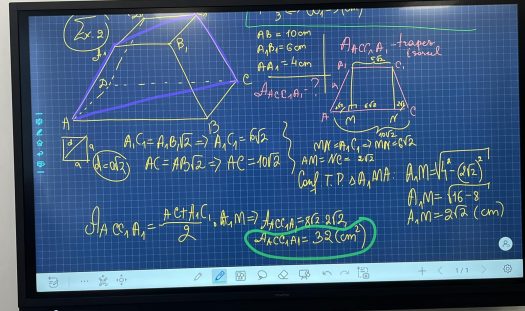 Ex. 2
AB = 10cm
A₁B₁ = 6cm
AA₁ = 4cm
A_ACC₁A₁ - ?
A_ACC₁A₁ - trapez
isoscel
B₁
D
C
A
B
A₁
C₁
A
M
N
C
6√2
10√2
d
a
a
d = a√2
A₁C₁ = A₁B₁√2 => A₁C₁ = 6√2
AC = AB√2 => AC = 10√2
MN = A₁C₁ => MN = 6√2
AM = NC = 2√2
Conf T.P Δ A₁MA:
A₁M = √4² - (2√2)²
A₁M = √16 - 8
A₁M = 2√2 (cm)
A_ACC₁A₁ = AC + A₁C₁ / 2 · A₁M => A_ACC₁A₁ = 8√2 · 2√2
A_ACC₁A₁ = 32 (cm²)
1/1